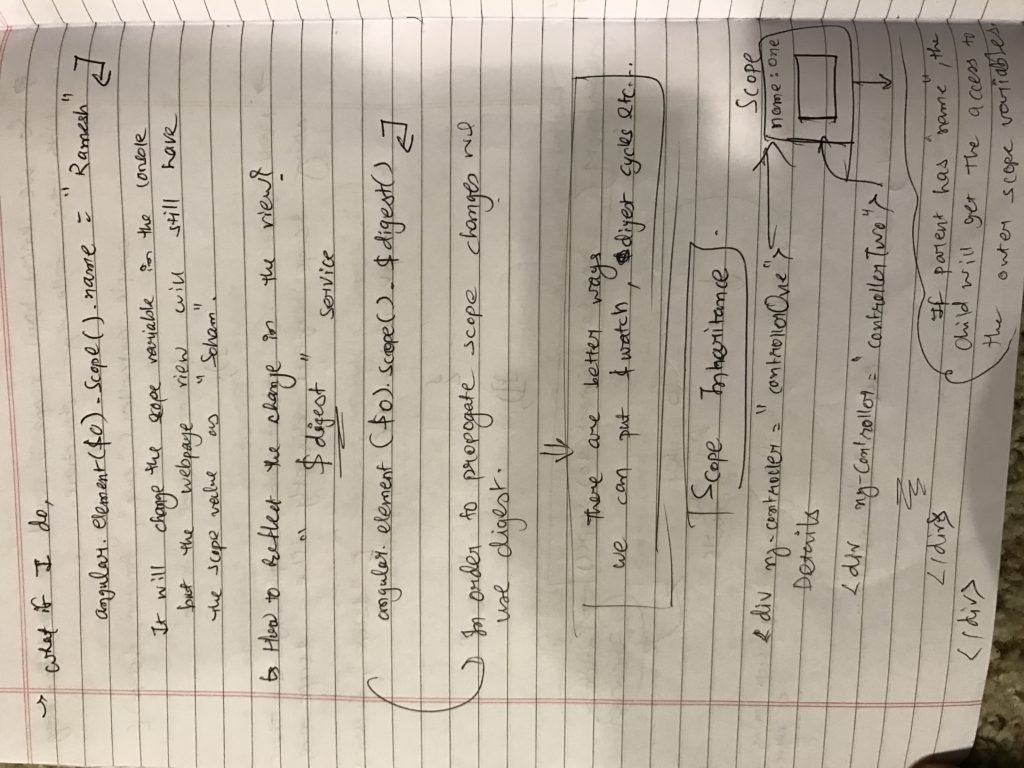 → What if I do,
angular.element($0).Scope().name = "Ramesh"
It will change the scope variable in the console
but the webpage view will still have
the scope value as "Soham".
↳ How to Reflect the change in the view?
"$digest" Service
angular.element ($0).scope().$digest()
In order to propogate scope changes we
use digest.
⇓
There are better ways
we can put $watch, $digest cycles etc...
Scope Inheritance
<div ng-controller = "controllerOne">
Scope
name: one
Details
<div ng-controller = "controllerTwo">
</div>
</div>
If parent has "name", the
child will get the access to
the outer scope variables.